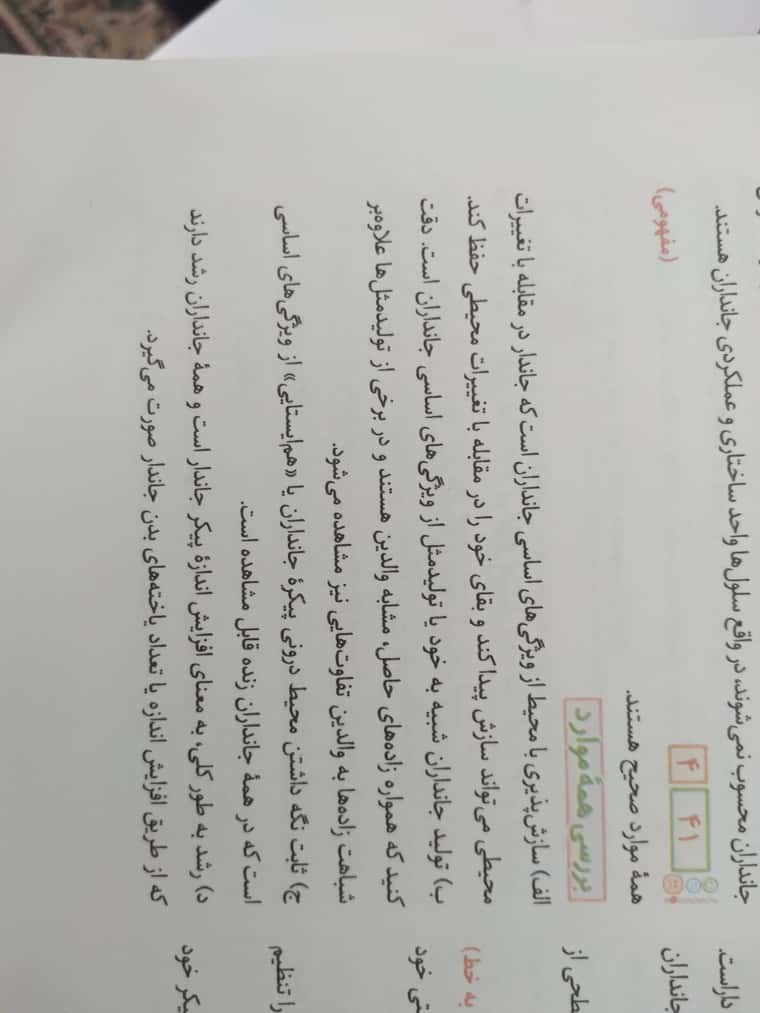 جانداران محسوب نمی‌شوند، در واقع سلول‌ها واحد ساختاری و عملکردی جانداران هستند.
۴۱ ۴ (مفهومی)
همهٔ موارد صحیح هستند.
بررسی همهٔ موارد
الف) سازش‌پذیری با محیط از ویژگی‌های اساسی جانداران است که جاندار در مقابله با تغییرات
محیطی می‌تواند سازش پیدا کند و بقای خود را در مقابله با تغییرات محیطی حفظ کند.
ب) تولید جانداران شبیه به خود یا تولیدمثل از ویژگی‌های اساسی جانداران است. دقت
کنید که همواره زاده‌های حاصل، مشابه والدین هستند و در برخی از تولیدمثل‌ها علاوه‌بر
شباهت زاده‌ها به والدین تفاوت‌هایی نیز مشاهده می‌شود.
ج) ثابت نگه داشتن محیط درونی پیکرهٔ جانداران یا «هم‌ایستایی» از ویژگی‌های اساسی
است که در همهٔ جانداران زنده قابل مشاهده است.
د) رشد به طور کلی، به معنای افزایش اندازهٔ پیکر جاندار است و همهٔ جانداران رشد دارند
که از طریق افزایش اندازه یا تعداد یاخته‌های بدن جاندار صورت می‌گیرد.
داراست.
جانداران
طحی از
به خط)
تی خود
را تنظیم
یکر خود